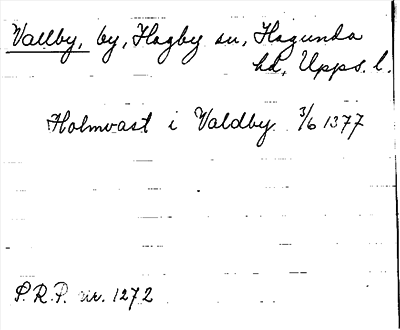 Vallby, by, Hagby sn, Hagunda
hd, Upps. l.
Holmvast i Valdby 3/6 1377
S.R.P. nr. 1272